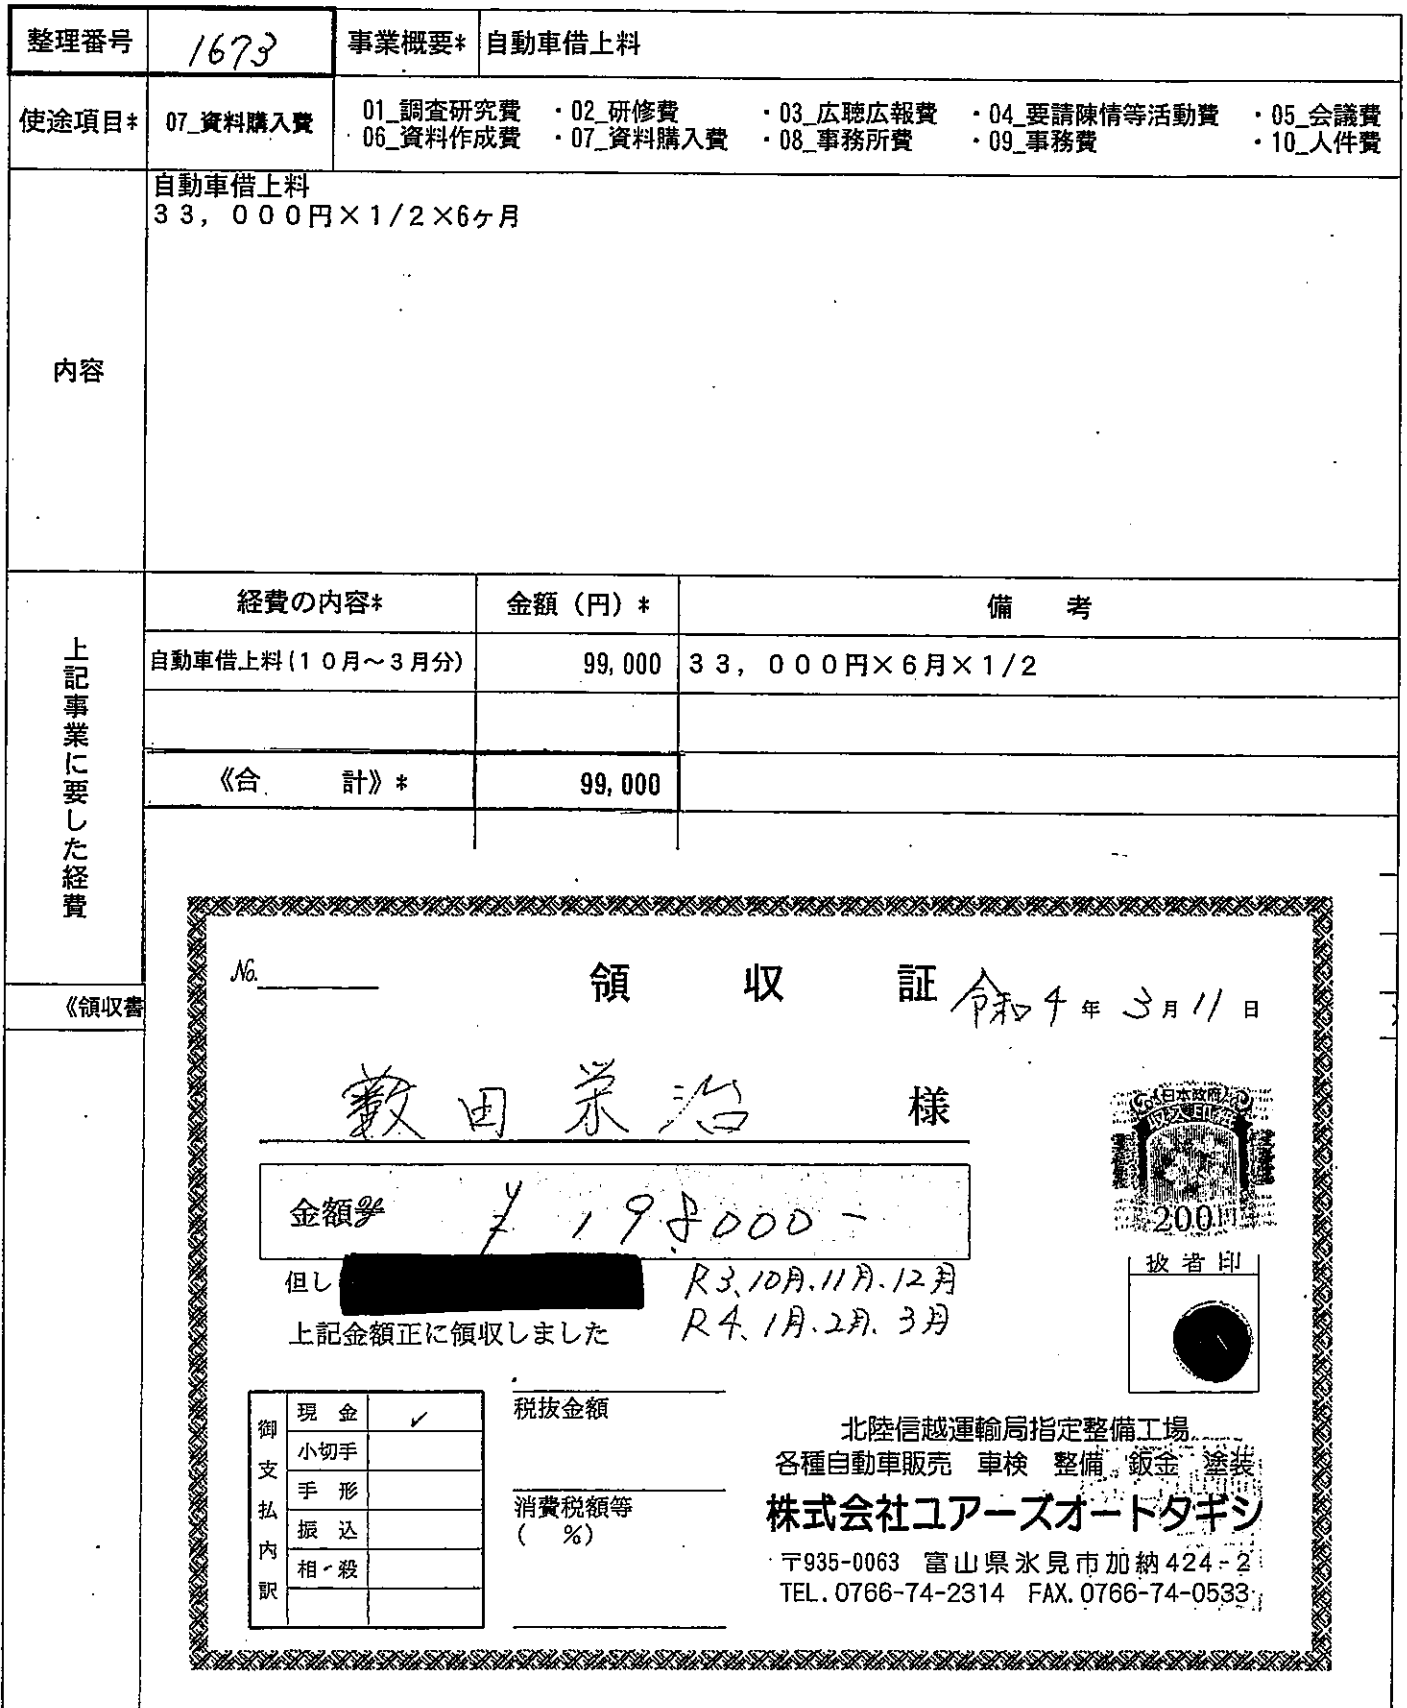 整理番号 1673 事業概要* 自動車借上料
使途項目* 07_資料購入費 01_調査研究費 ・02_研修費 ・03_広聴広報費 ・04_要請陳情等活動費 ・05_会議費
06_資料作成費 ・07_資料購入費 ・08_事務所費 ・09_事務費 ・10_人件費
内容
自動車借上料
33,000円×1/2×6ヶ月
上記事業に要した経費
経費の内容* 金額(円)* 備考
自動車借上料(10月～3月分) 99,000 33,000円×6月×1/2
《合計》* 99,000
《領収書
No. 領収証 令和4年3月11日
藪田栄治 様
金額 ¥198000-
但し R3、10月.11月.12月
R4、1月.2月.3月
上記金額正に領収しました
日本政府
収入印紙
200円
扱者印
御支払内訳
現金 ✓
小切手
手形
振込
相・殺
税抜金額
消費税額等
( %)
北陸信越運輸局指定整備工場
各種自動車販売 車検 整備 鈑金 塗装
株式会社ユアーズオートタギシ
〒935-0063 富山県氷見市加納424-2
TEL.0766-74-2314 FAX.0766-74-0533